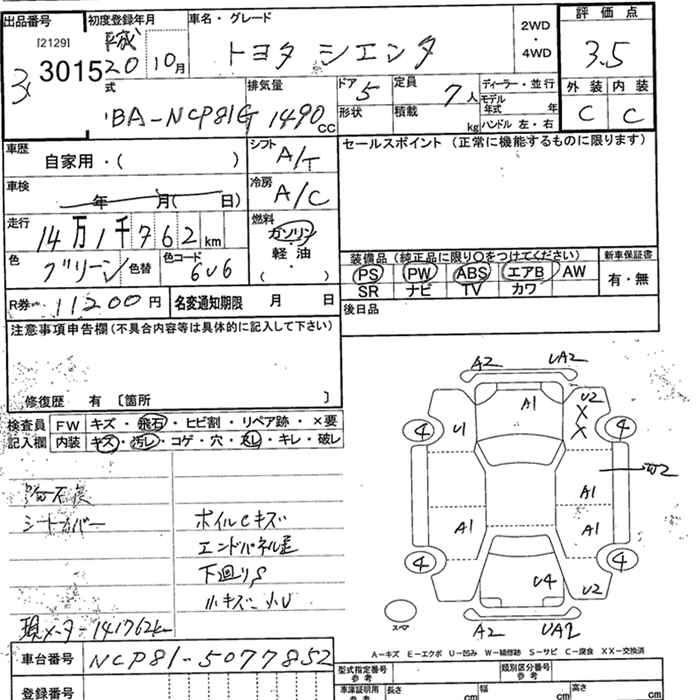 出品番号 初度登録年月 車名・グレード 2WD・4WD 評価点
[2129] 3 3015
平成20年10月 トヨタ シエンタ 3.5
外装 内装
C C
式 排気量 ドア 5 定員 7人 ディーラー・並行
BA-NCP81G 1490cc 形状 積載 kg モデル年式 年
ハンドル 左・右
車歴 自家用・( ) シフト A/T セールスポイント (正常に機能するものに限ります)
車検 年 月( 日) 冷房 A/C
走行 14万1千762km 燃料 ガソリン・軽油 ( )
色 グリーン 色替 色コード 6V6
装備品 (純正品に限り○をつけてください) 新車保証書
PS PW ABS エアB AW 有・無
SR ナビ TV カワ
R券 11200円 名変通知期限 月 日 後日品
注意事項申告欄 (不具合内容等は具体的に記入して下さい)
修復歴 有 〔箇所 〕
検査員記入欄 FW キズ・飛石・ヒビ割・リペア跡・×要
内装 キズ・汚レ・コゲ・穴・スレ・キレ・破レ
シートカバー
ホイルCキズ
エンドパネル歪
下廻りS
小キズ小U
現メーター141762k
A2 UA2
A1 U2
X
X
U1
4 4
W2
A1
A1 A1
4 4
U4 U2
A2 UA2
スペア
A-キズ E-エクボ U-凹み W-補修跡 S-サビ C-腐食 XX-交換済
車台番号 NCP81-5077852
型式指定番号 参考 類別区分番号 参考
登録番号
車庫証明用 参考 長さ cm 幅 cm 高さ cm